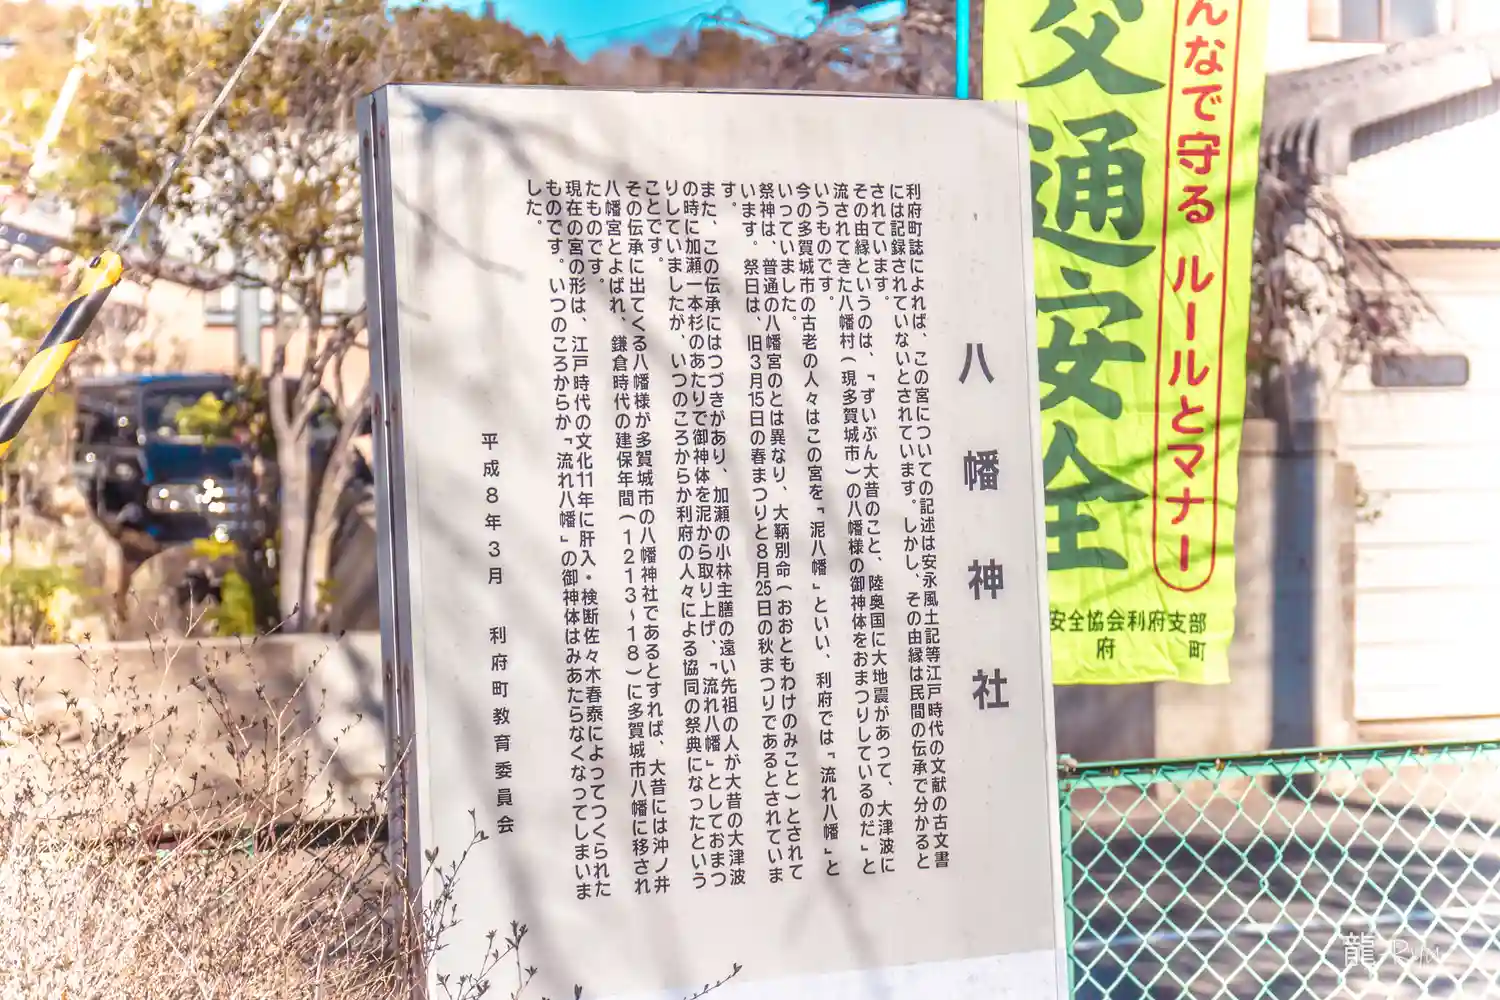 八幡神社
利府町誌によれば、この宮についての記述は安永風土記等江戸時代の文献の古文書
には記録されていないとされています。しかし、その由縁は民間の伝承で分かると
されています。
その由縁というのは、「ずいぶん大昔のこと、陸奥国に大地震があつて、大津波に
流されてきた八幡村(現多賀城市)の八幡様の御神体をおまつりしているのだ」と
いうものです。
今の多賀城市の古老の人々はこの宮を「泥八幡」といい、利府では「流れ八幡」と
いっていました。
祭神は、普通の八幡宮のとは異なり、大鞆別命(おおともわけのみこと)とされて
います。祭日は、旧3月15日の春まつりと8月25日の秋まつりであるとされていま
す。
また、この伝承にはつづきがあり、加瀬の小林主膳の遠い先祖の人が大昔の大津波
の時に加瀬一本杉のあたりで御神体を泥から取り上げ、「流れ八幡」としておまつ
りしていましたが、いつのころからか利府の人々による協同の祭典になったという
ことです。
その伝承に出てくる八幡様が多賀城市の八幡神社であるとすれば、大昔には沖ノ井
八幡宮とよばれ、鎌倉時代の建保年間(1213~18)に多賀城市八幡に移され
たものです。
現在の宮の形は、江戸時代の文化11年に肝入・検断佐々木春泰によってつくられた
ものです。いつのころからか「流れ八幡」の御神体はみあたらなくなってしまいま
した。
平成8年3月 利府町教育委員会
んなで守る ルールとマナー
交通安全
安全協会利府支部
府 町
龍 Ryu